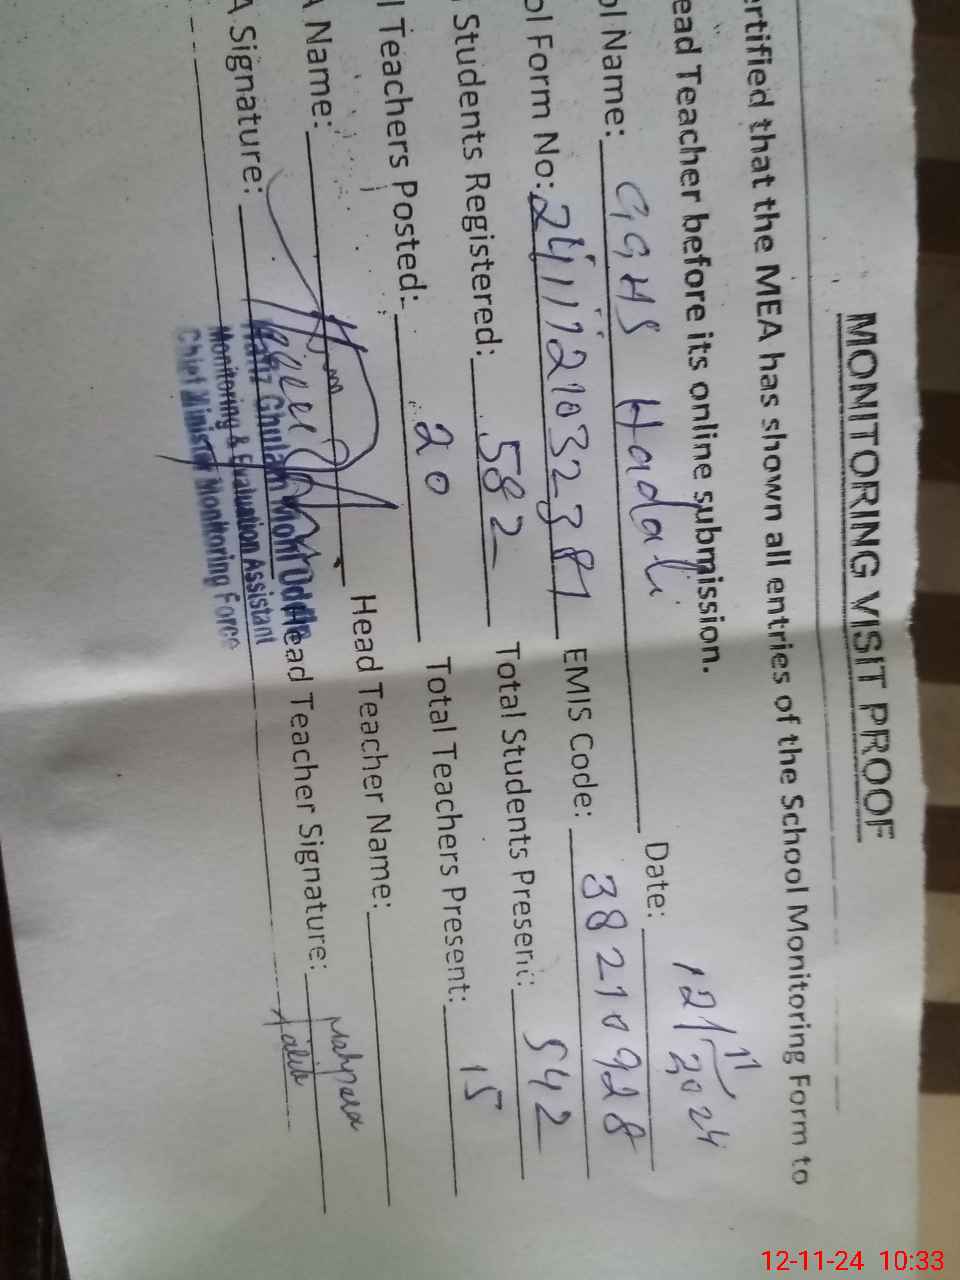 MONITORING VISIT PROOF
ertified that the MEA has shown all entries of the School Monitoring Form to
ead Teacher before its online submission.
Date: 12/11/2024
ol Name: GGHS Hadali
ol Form No: EMIS Code: 38210928
Students Registered: 582 Total Students Present: 542
l Teachers Posted: 20 Total Teachers Present: 15
A Name: Head Teacher Name:
A Signature: Head Teacher Signature: Mahpara
Hafiz Ghulam
Monitoring & Evaluation Assistant
Chief Minister Monitoring Force
12-11-24 10:33